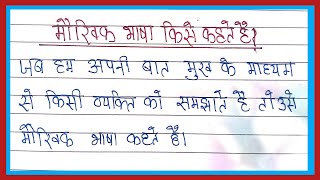 मौखिक भाषा किसे कहते है?
जब हम अपनी बात मुख के माध्यम
से किसी व्यक्ति को समझाते है तो उसे
मौखिक भाषा कहते है।